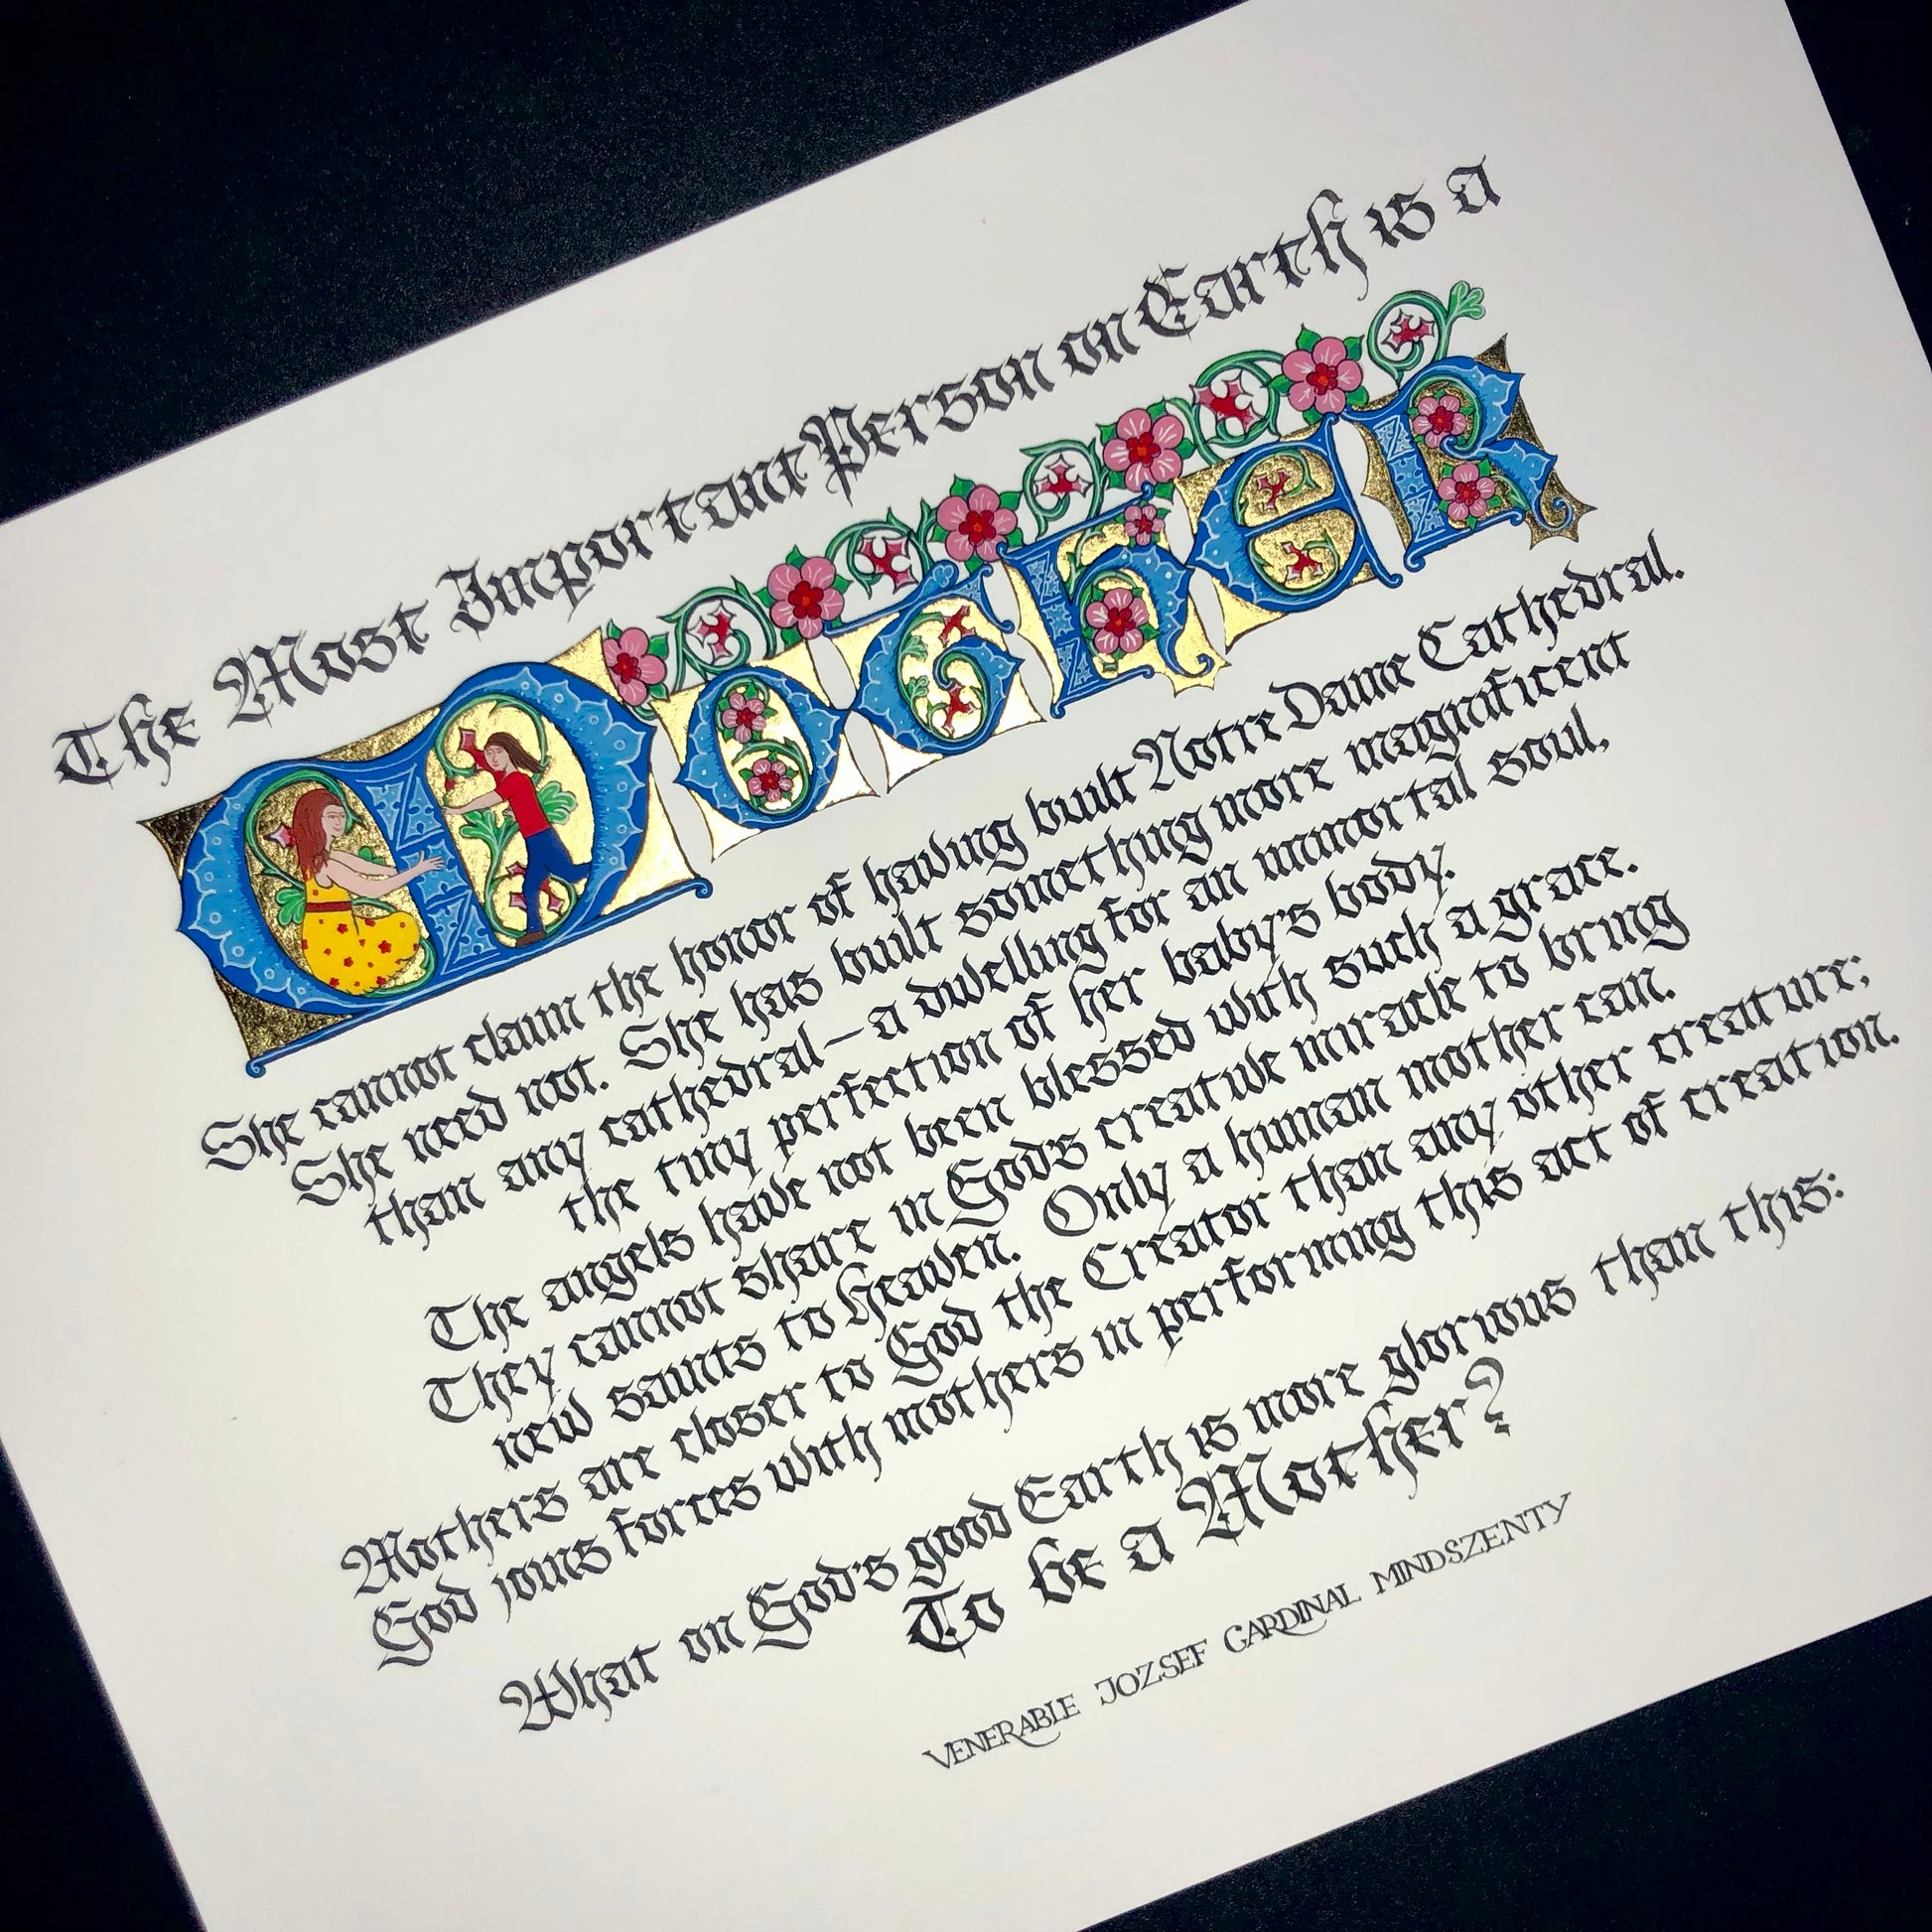 The Most Important Person on Earth is a
Mother
She cannot claim the honor of having built Notre Dame Cathedral.
She need not. She has built something more magnificent
than any cathedral—a dwelling for an immortal soul,
the tiny perfection of her baby's body.
The angels have not been blessed with such a grace.
They cannot share in God's creative miracle to bring
new saints to Heaven. Only a human mother can.
Mothers are closer to God the Creator than any other creature;
God joins forces with mothers in performing this act of creation.
What on God's good Earth is more glorious than this:
To be a Mother?
VENERABLE JOZSEF CARDINAL MINDSZENTY